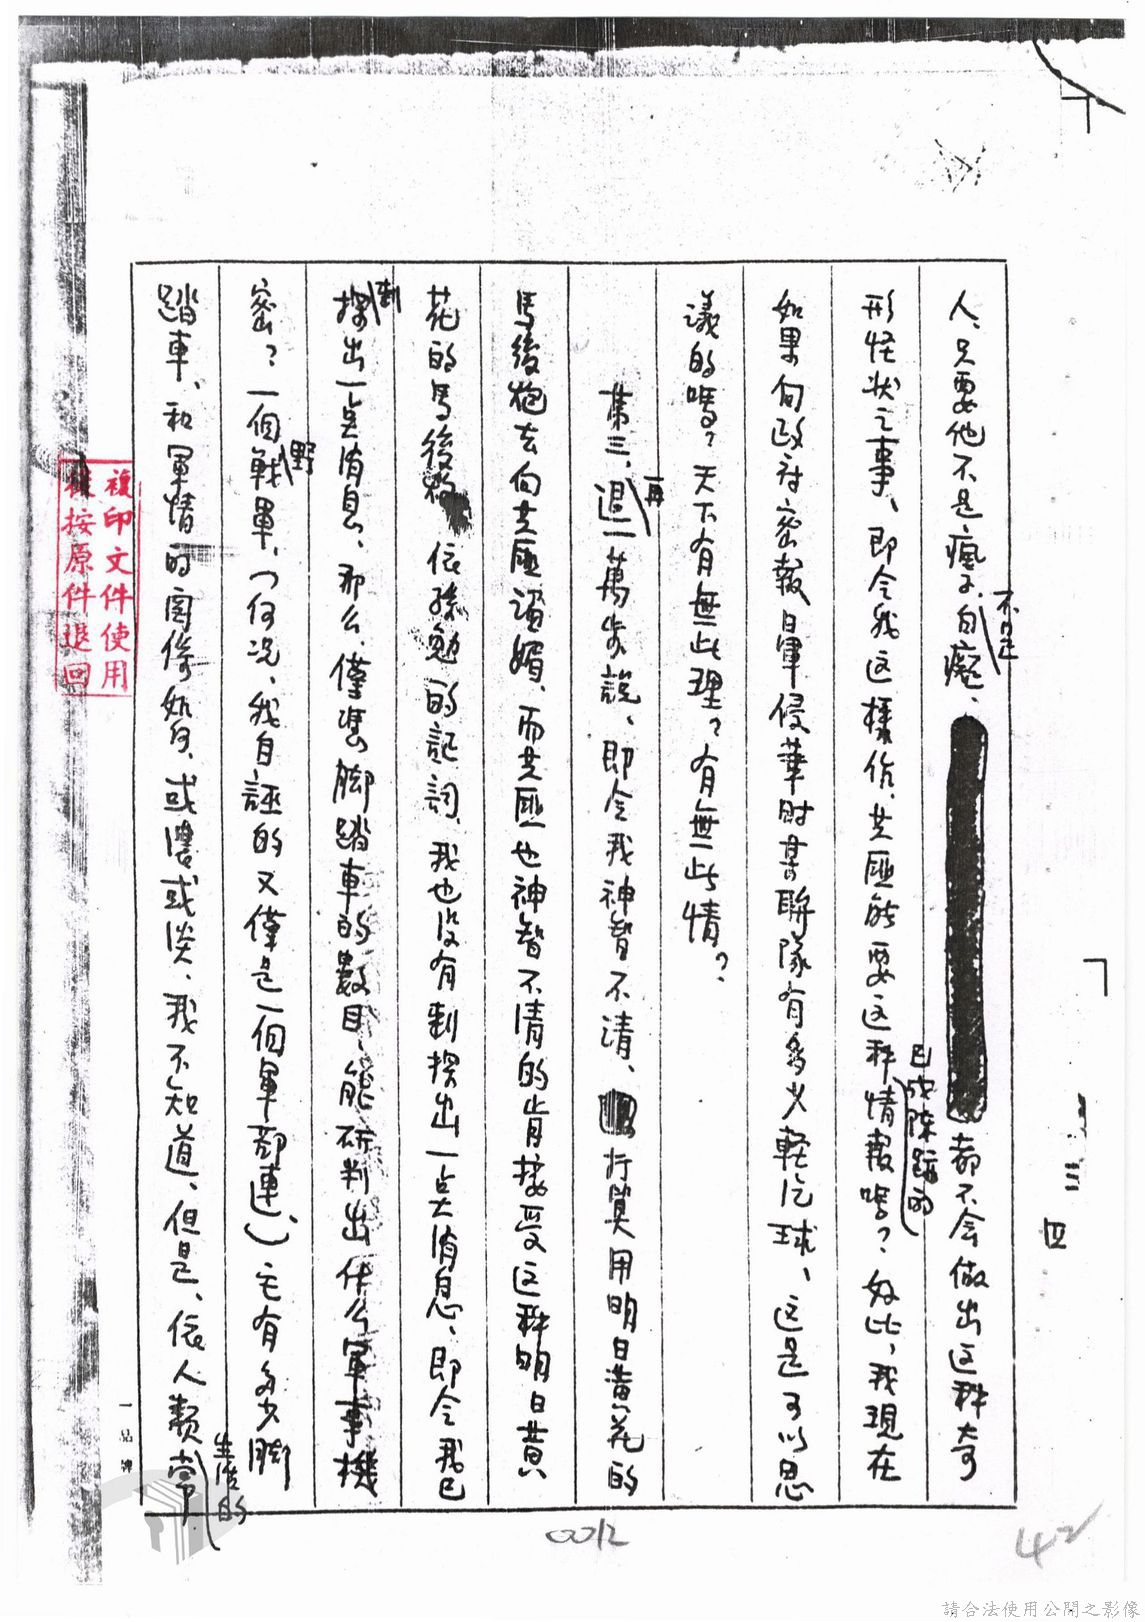 人、只要他不是瘋子、不是白癡、都不会做出这种奇
形怪状之事、即令我这樣作、共匪能要这种已成陳跡的情報嗎？好比，我現在
如果向政府密報日軍侵華時某聯隊有多少軽汽球、这是可以思
議的嗎？天下有無此理？有無此情？
第三、再退一萬步說、即令我神智不清、行箕用明日黄花的
馬後炮去向共匪諂媚、而共匪也神智不清的肯接受这种明日黄
花的馬後炮 依孫勉的記詞、我也没有刺探出一点消息、即令我已
刺探出一点消息、那么、僅憑脚踏車的數目、能研判出什么軍事機
密？一個野戰軍、(何况、我自誣的又僅是一個軍部連)、它有多少脚
踏車、和軍情的関係如何、或濃或淡、我不知道、但是、依人類生活的常
三
四
複印文件使用
後按原件退回
一品牌
0012
42
請合法使用公開之影像